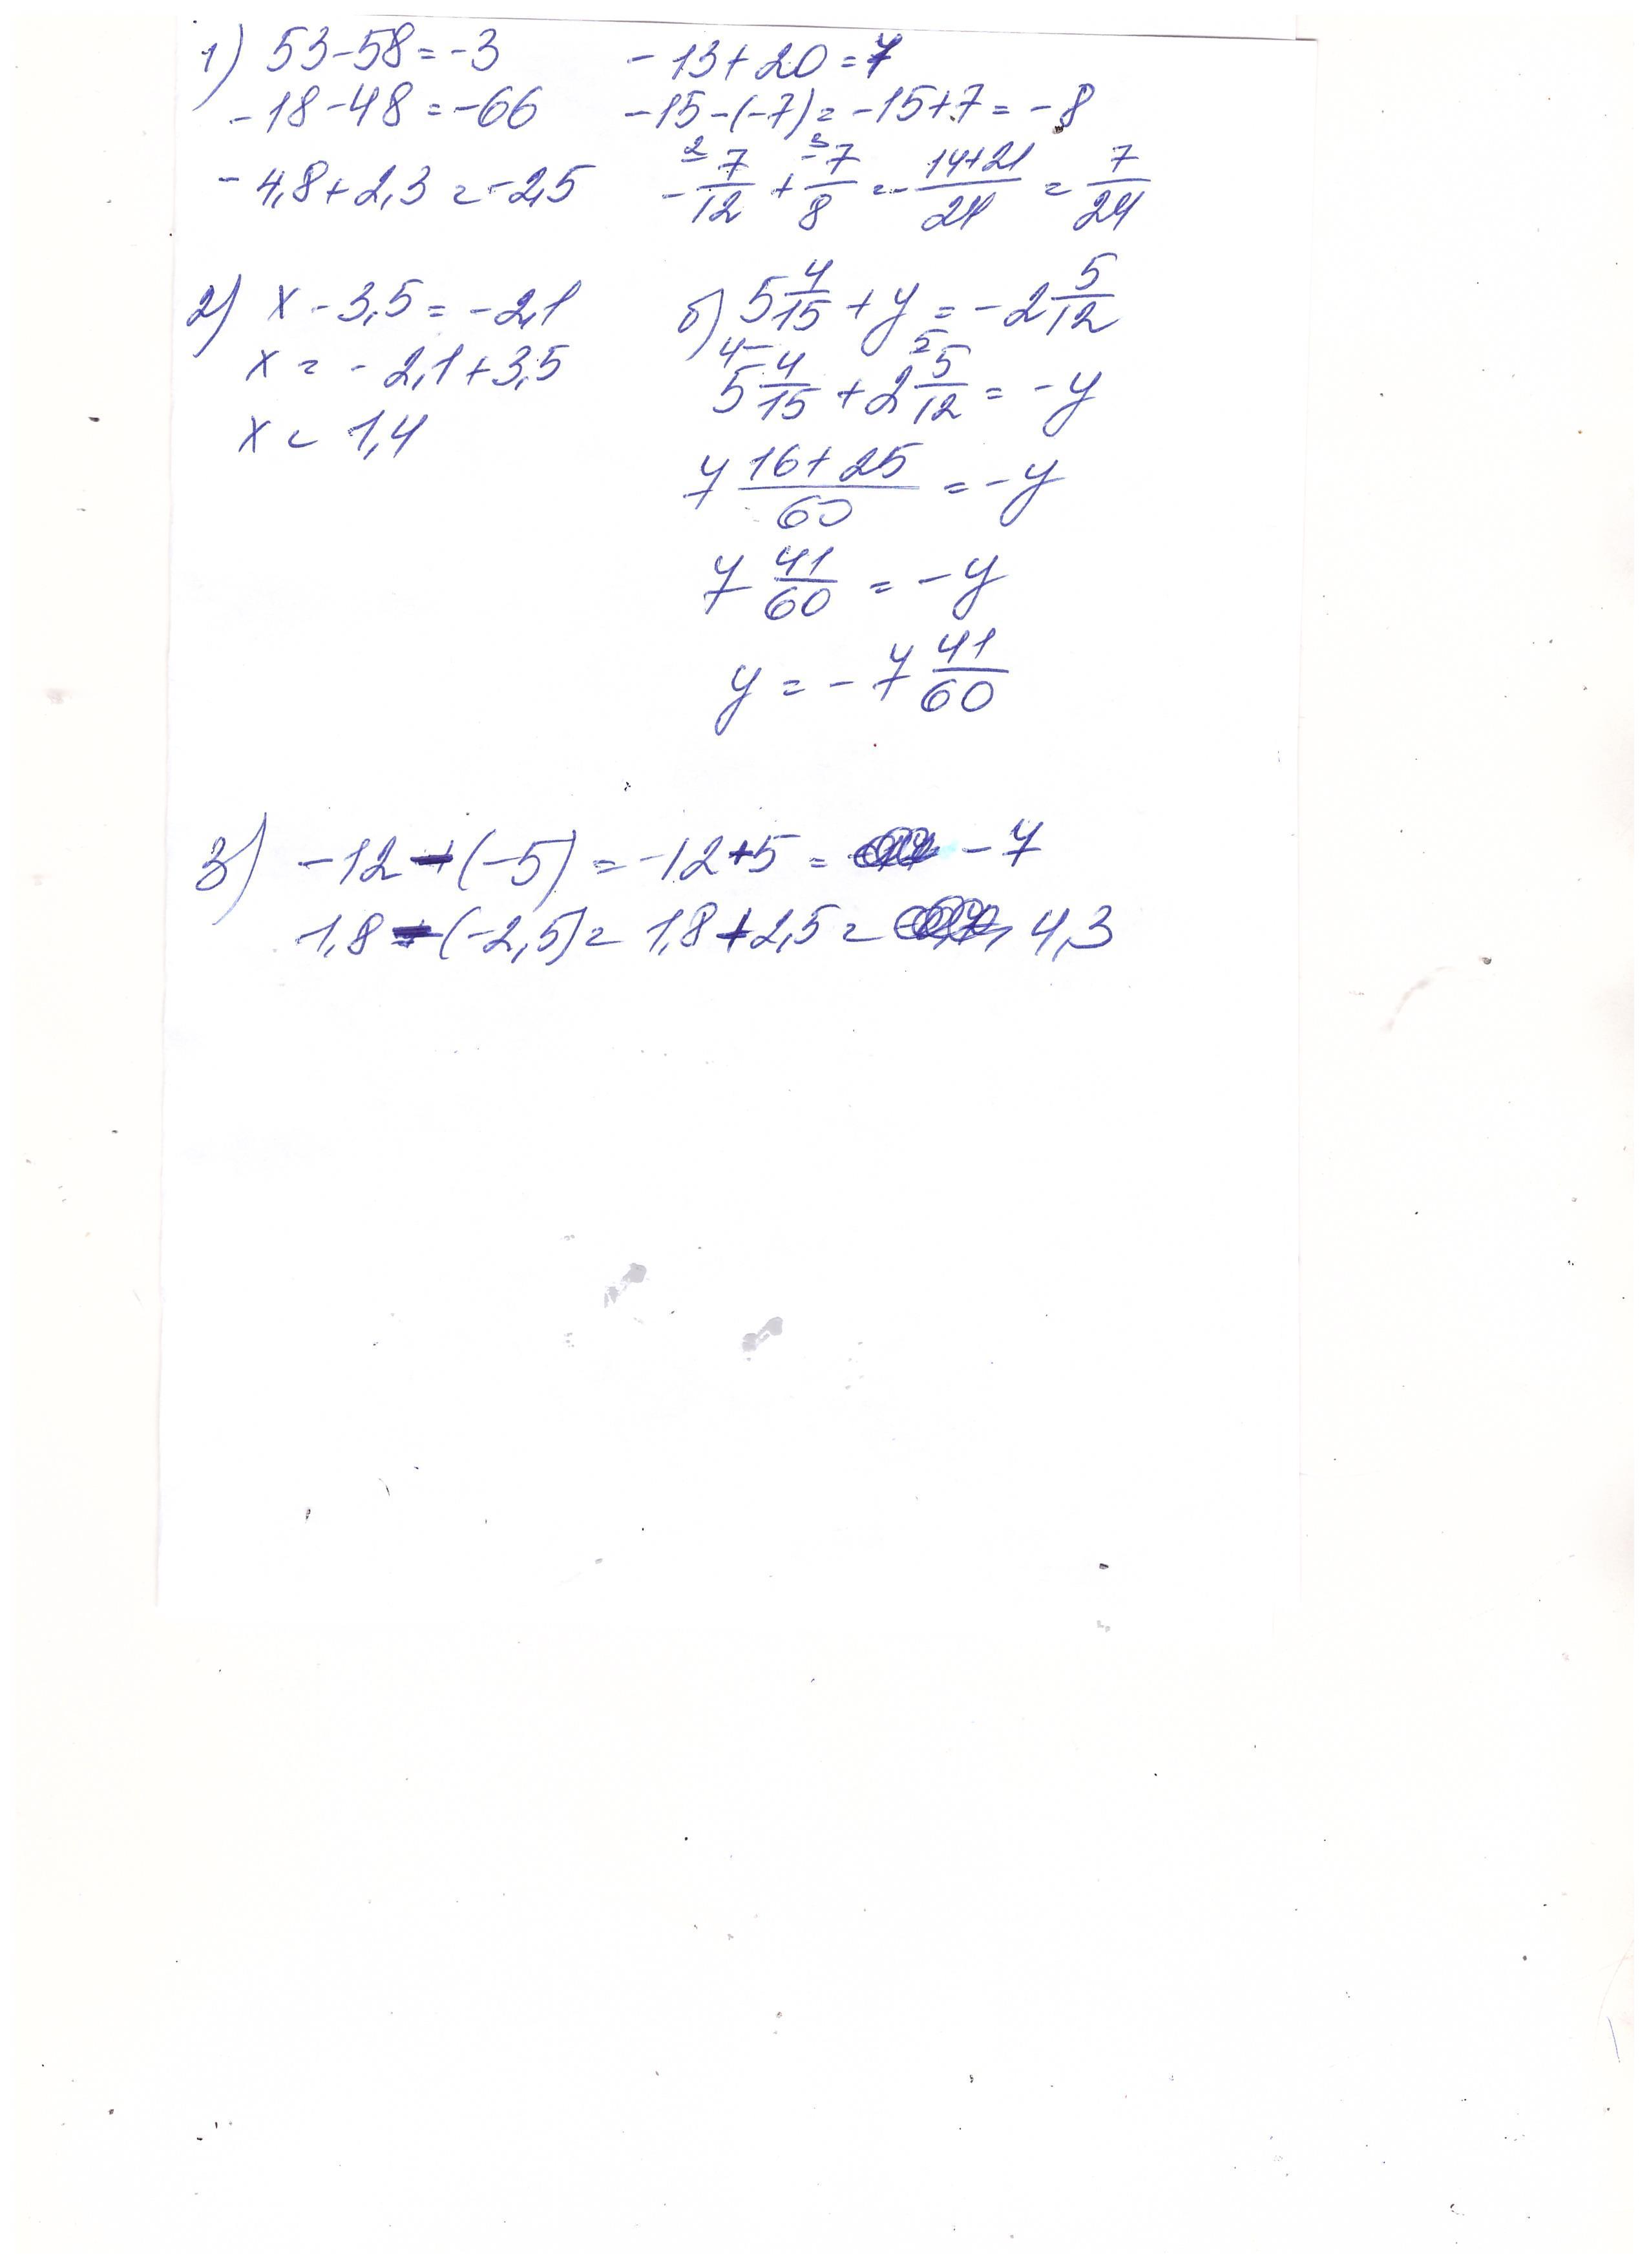 1) 53-58=-3 -13+20=7
-18-48=-66 -15-(-7)=-15+7=-8
-4,8+2,3=-2,5 -7/12+7/8=-14+21/24=7/24
2) x-3,5=-2,1 б) 5 4/15+y=-2 5/12
x=-2,1+3,5 5 4/15+2 5/12=-y
x=1,4
7 16+25/60=-y
7 41/60=-y
y=-7 41/60
3) -12-(-5)=-12+5=-7
1,8-(-2,5)=1,8+2,5=4,3